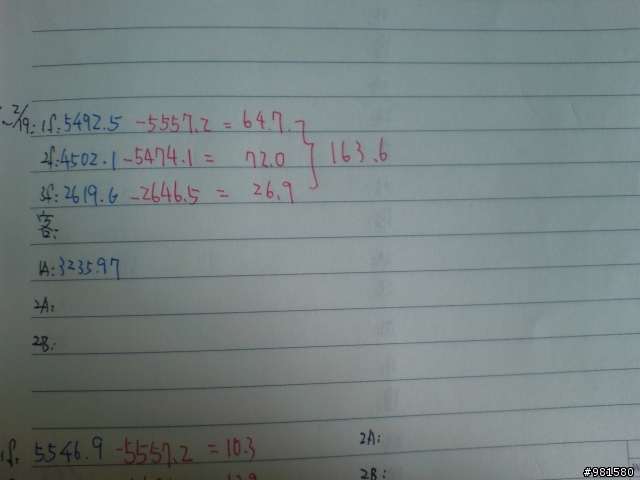 ~2/19: 1f: 5492.5 -5557.2 = 64.7.
2f: 4502.1 -5474.1 = 72.0
163.6
3f: 2619.6 -2646.5 = 26.9
客:
1A: 3235.97
2A:
2B:
1f: 5546.9 -5557.2 = 10.3
2A:
2B:
#981580